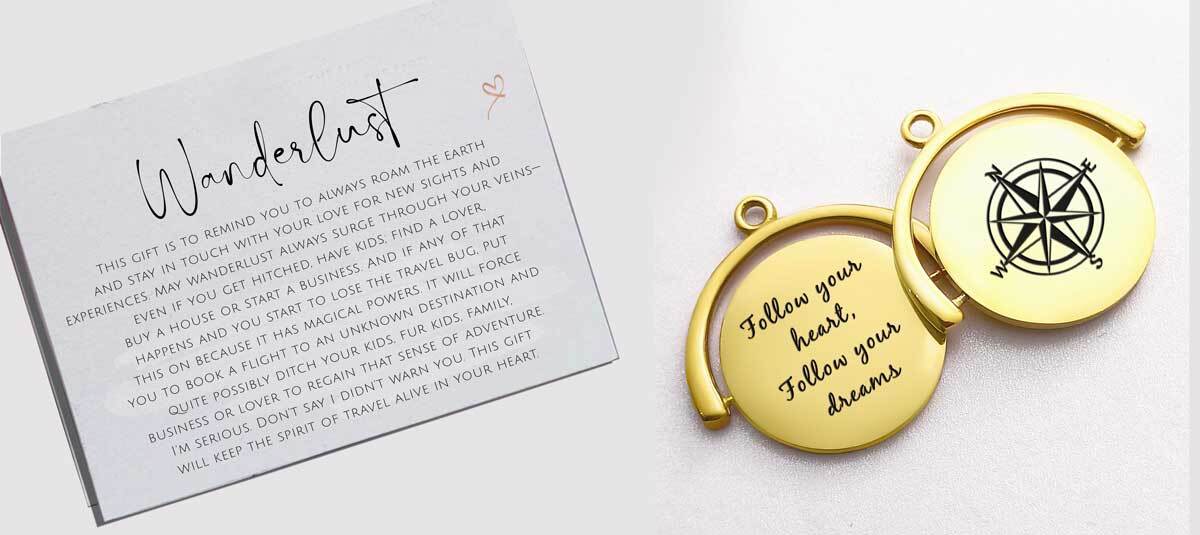 Wanderlust
THIS GIFT IS TO REMIND YOU TO ALWAYS ROAM THE EARTH
AND STAY IN TOUCH WITH YOUR LOVE FOR NEW SIGHTS AND
EXPERIENCES. MAY WANDERLUST ALWAYS SURGE THROUGH YOUR VEINS—
EVEN IF YOU GET HITCHED, HAVE KIDS, FIND A LOVER,
BUY A HOUSE OR START A BUSINESS. AND IF ANY OF THAT
HAPPENS AND YOU START TO LOSE THE TRAVEL BUG, PUT
THIS ON BECAUSE IT HAS MAGICAL POWERS. IT WILL FORCE
YOU TO BOOK A FLIGHT TO AN UNKNOWN DESTINATION AND
QUITE POSSIBLY DITCH YOUR KIDS, FUR KIDS, FAMILY,
BUSINESS OR LOVER TO REGAIN THAT SENSE OF ADVENTURE.
I'M SERIOUS. DON'T SAY I DIDN'T WARN YOU. THIS GIFT
WILL KEEP THE SPIRIT OF TRAVEL ALIVE IN YOUR HEART.
Follow your
heart,
Follow your
dreams
N E
W S